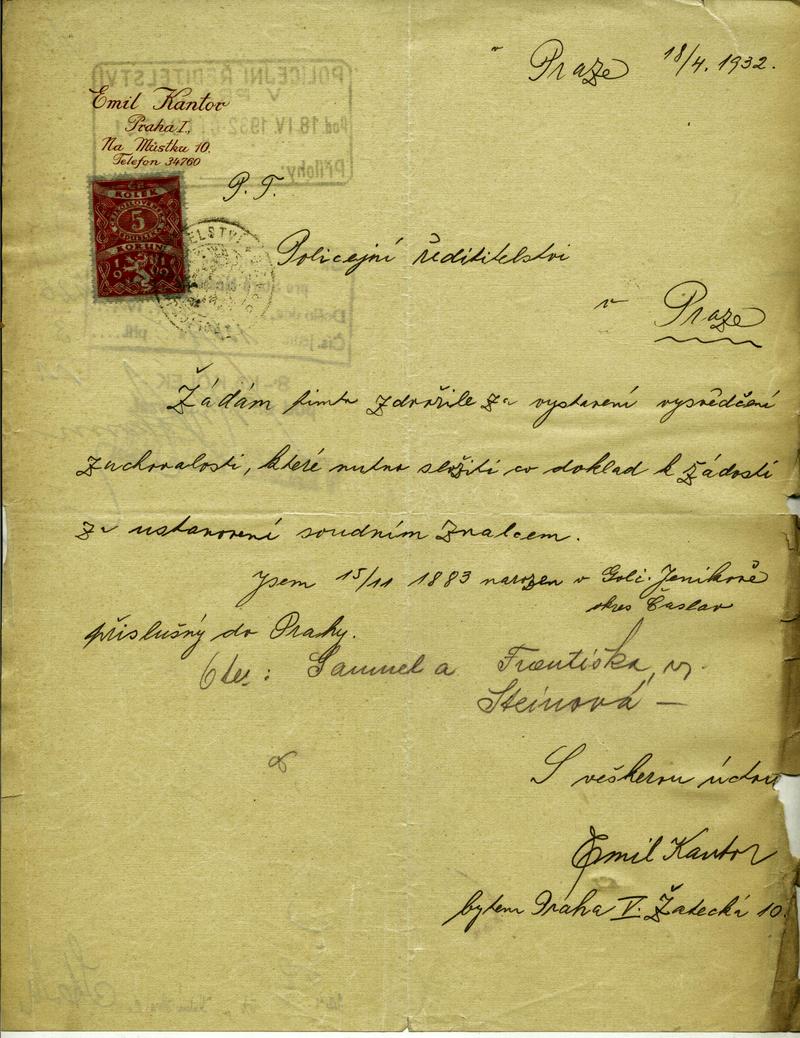 v Praze 18/4. 1932.
Emil Kantor
Praha I,
Na Můstku 10.
Telefon 34760
POLICEJNÍ ŘEDITELSTVÍ
V PR
Pod. 18.IV.1932
Přílohy:
P. T.
KOLEK
5
KORUN
1919
Policejní ředititelstvi
v Praze
Žádám timto zdvořile za vystavení vysvědčení
zachovalosti, které nutno složiti co doklad k žádosti
za ustanovení soudním znalcem.
Jsem 15/11 1883 narozen v Golč. Jenikově
okres Časlav
příslušný do Prahy.
Otec: Samuel a Františka, r.
Steinová –
S veškerou úctou
Emil Kantor
bytem Praha V. Žatecká 10.